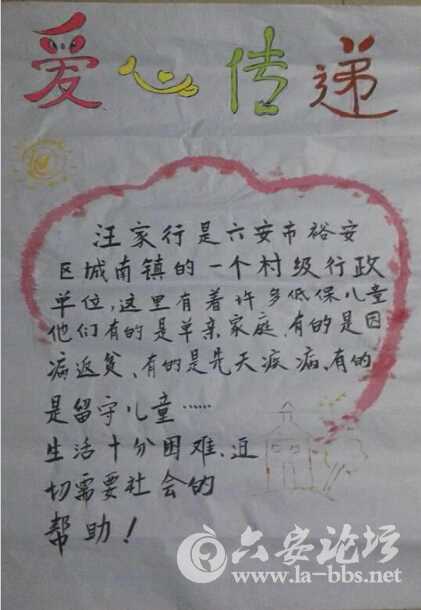 爱心传递
汪家行是六安市裕安
区城南镇的一个村级行政
单位,这里有着许多低保儿童
他们有的是单亲家庭、有的是因
病返贫、有的是先天疾病、有的
是留守儿童……
生活十分困难、迫
切需要社会的
帮助!
六安论坛
www.la-bbs.net